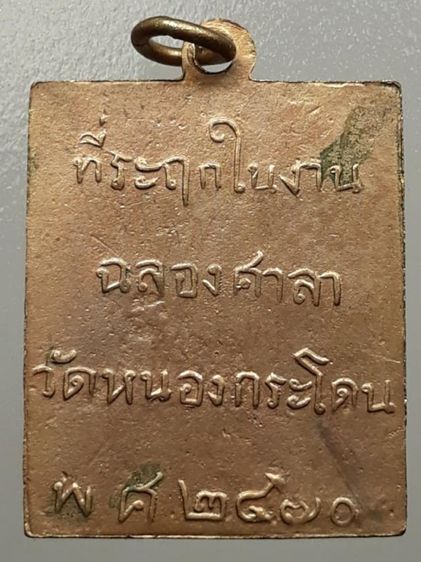 ที่ระฤกในงาน
ฉลองศาลา
วัดหนองกระโดน
พ ศ ๒๔๗๐